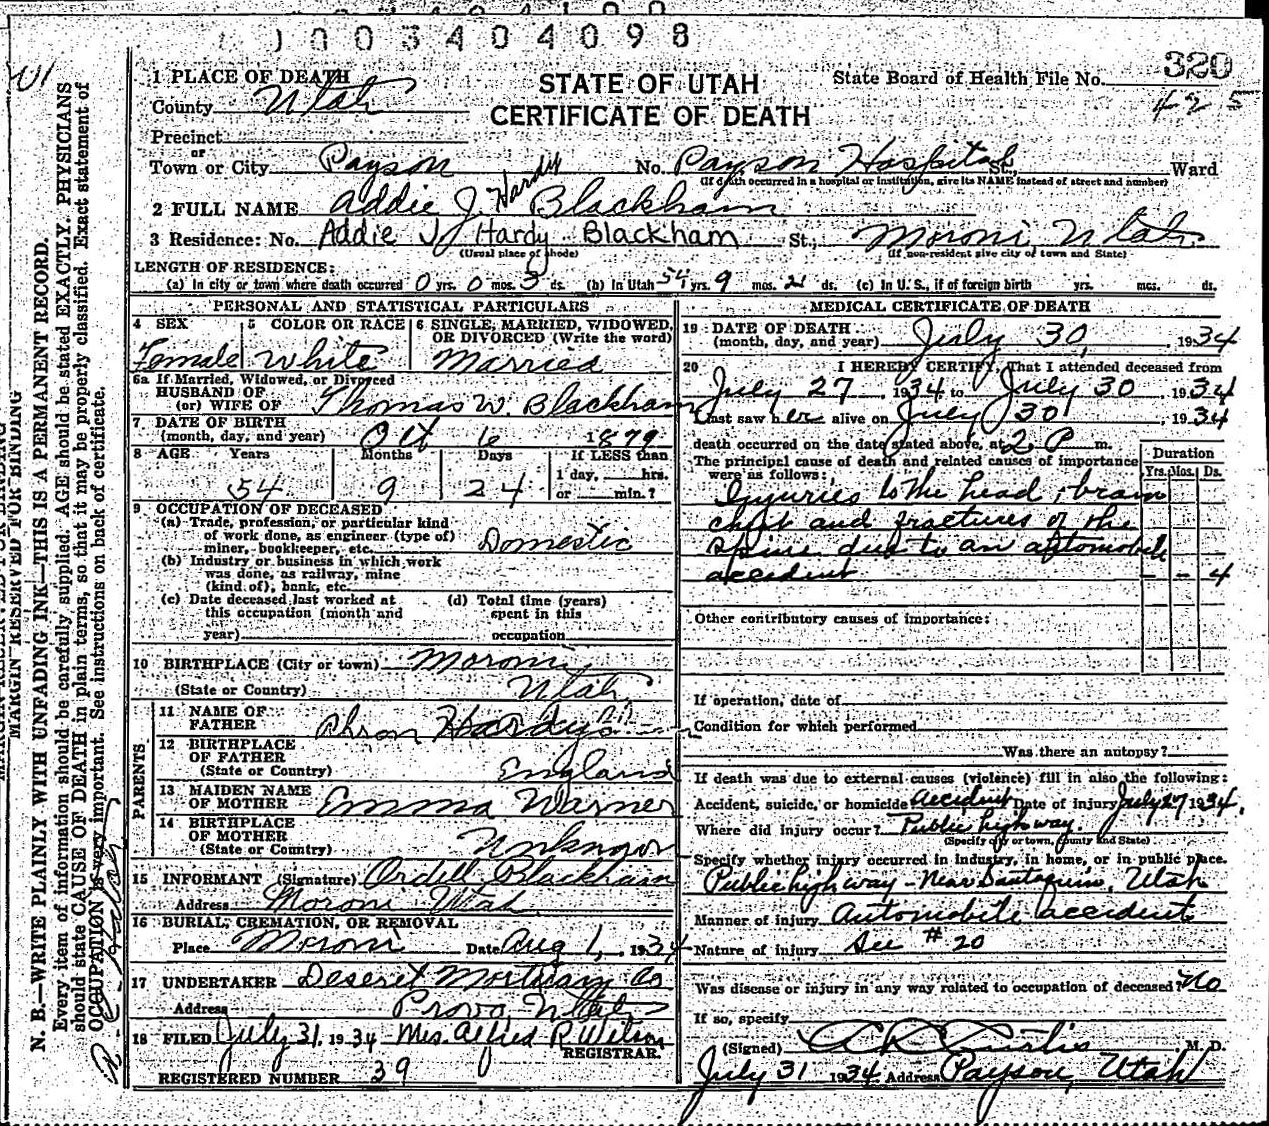 0003404098
1 PLACE OF DEATH
STATE OF UTAH
CERTIFICATE OF DEATH
State Board of Health File No. 320
425
County Utah
Precinct
or
Town or City Payson No. Payson Hospital St., Ward
(If death occurred in a hospital or institution, give its NAME instead of street and number)
2 FULL NAME Addie J. Hardy Blackham
3 Residence: No. Addie J Hardy Blackham St., Moroni, Utah
(Usual place of abode) (If non-resident give city of town and State)
LENGTH OF RESIDENCE:
(a) In city or town where death occurred 0 yrs. 0 mos. 3 ds. (b) In Utah 54 yrs. 9 mos. 2 ds. (c) In U. S., if of foreign birth yrs. mos. ds.
PERSONAL AND STATISTICAL PARTICULARS
4 SEX Female
5 COLOR OR RACE White
6 SINGLE, MARRIED, WIDOWED, OR DIVORCED (Write the word) Married
6a If Married, Widowed, or Divorced
HUSBAND OF
(or) WIFE OF Thomas W. Blackham
7 DATE OF BIRTH
(month, day, and year) Oct 6 1879
8 AGE Years Months Days If LESS than
1 day, hrs.
54 9 24 or min.?
9 OCCUPATION OF DECEASED
(a) Trade, profession, or particular kind
of work done, as engineer (type of)
miner, bookkeeper, etc. Domestic
(b) Industry or business in which work
was done, as railway, mine
(kind of), bank, etc.
(c) Date deceased last worked at
this occupation (month and
year)
(d) Total time (years)
spent in this
occupation
10 BIRTHPLACE (City or town) Moroni
(State or Country) Utah
PARENTS
11 NAME OF
FATHER Ahron Hardy
12 BIRTHPLACE
OF FATHER
(State or Country) England
13 MAIDEN NAME
OF MOTHER Emma Warner
14 BIRTHPLACE
OF MOTHER
(State or Country) Unknown
15 INFORMANT (Signature) Ordell Blackham
Address Moroni Utah
16 BURIAL, CREMATION, OR REMOVAL
Place Moroni Date Aug 1, 1934
17 UNDERTAKER Deseret Mortuary Co
Address Provo, Utah
18 FILED July 31, 1934 Mrs. Alfred R Wilson
REGISTRAR.
REGISTERED NUMBER 39
MEDICAL CERTIFICATE OF DEATH
19 DATE OF DEATH
(month, day, and year) July 30, 1934
20 I HEREBY CERTIFY, That I attended deceased from
July 27 1934 to July 30 1934
Last saw her alive on July 30, 1934
death occurred on the date stated above, at 2 P m.
The principal cause of death and related causes of importance
were as follows:
Duration
Yrs. Mos. Ds.
Injuries to the head, brain
chest and fractures of the
spine due to an automobile
accident - - 4
Other contributory causes of importance:
If operation, date of
Condition for which performed
Was there an autopsy?
If death was due to external causes (violence) fill in also the following:
Accident, suicide, or homicide Accident Date of injury July 27 1934.
Where did injury occur? Public highway.
(Specify city or town, county and State)
Specify whether injury occurred in industry, in home, or in public place.
Public highway - Near Santaquin, Utah
Manner of injury Automobile accident
Nature of injury See # 20
Was disease or injury in any way related to occupation of deceased? No
If so, specify
(Signed) A R Curtis M. D.
July 31 1934 Address Payson, Utah
MARGIN RESERVED FOR BINDING
N. B.—WRITE PLAINLY WITH UNFADING INK—THIS IS A PERMANENT RECORD.
Every item of information should be carefully supplied. AGE should be stated EXACTLY. PHYSICIANS
should state CAUSE OF DEATH in plain terms, so that it may be properly classified. Exact statement of
OCCUPATION is very important. See instructions on back of certificate.